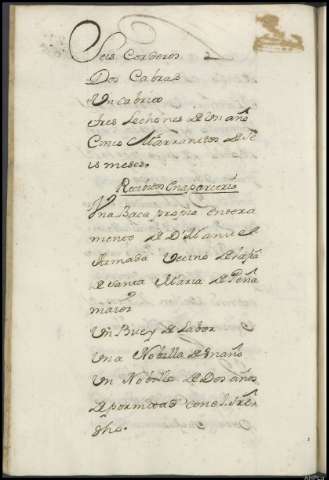 Seis Corderos
Dos Cabras
Un Cabrito
tres Lechones de Un año
Cinco Marranetos de Se
is meses.
Recibios En aparcería
Una Baca propia entera
mente de Dn Manuel
Armada Vecino de la fa
de Santa Maria de Peña
mayor
Un Buey de Labor
Una Nobilla de Un año
Un Nobillo de Dos años
de por mitad con el Sre
dho.
ANPLU